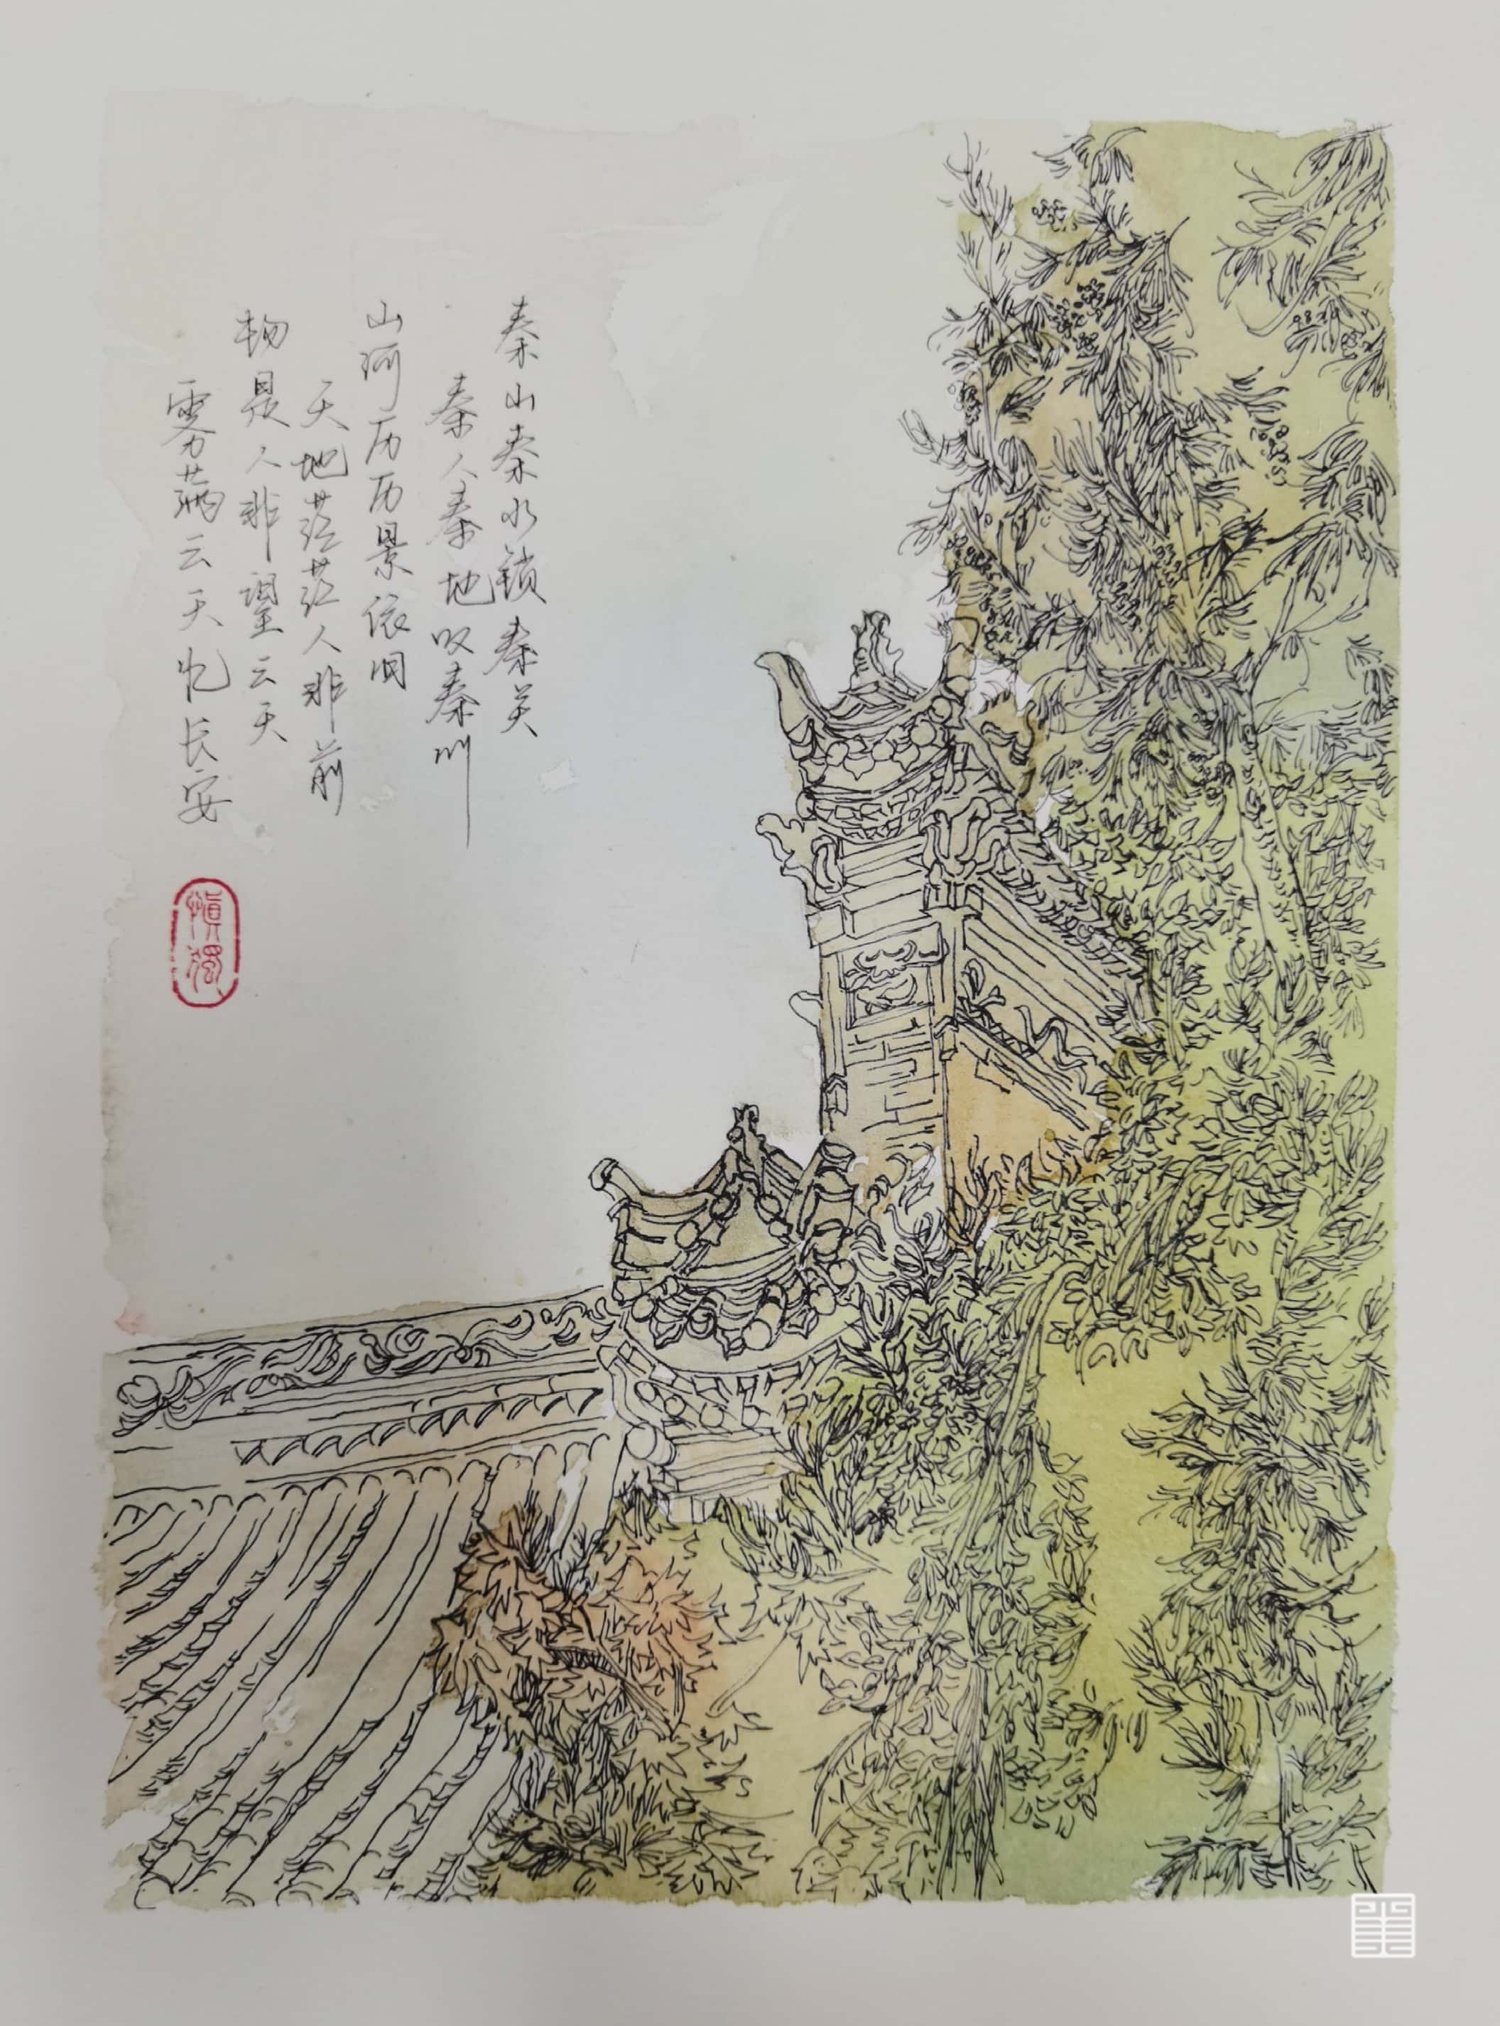 秦山秦水锁秦关
秦人秦地叹秦川
山河历历景依旧
天地茫茫人非前
物是人非望云天
雾满云天忆长安
慎独